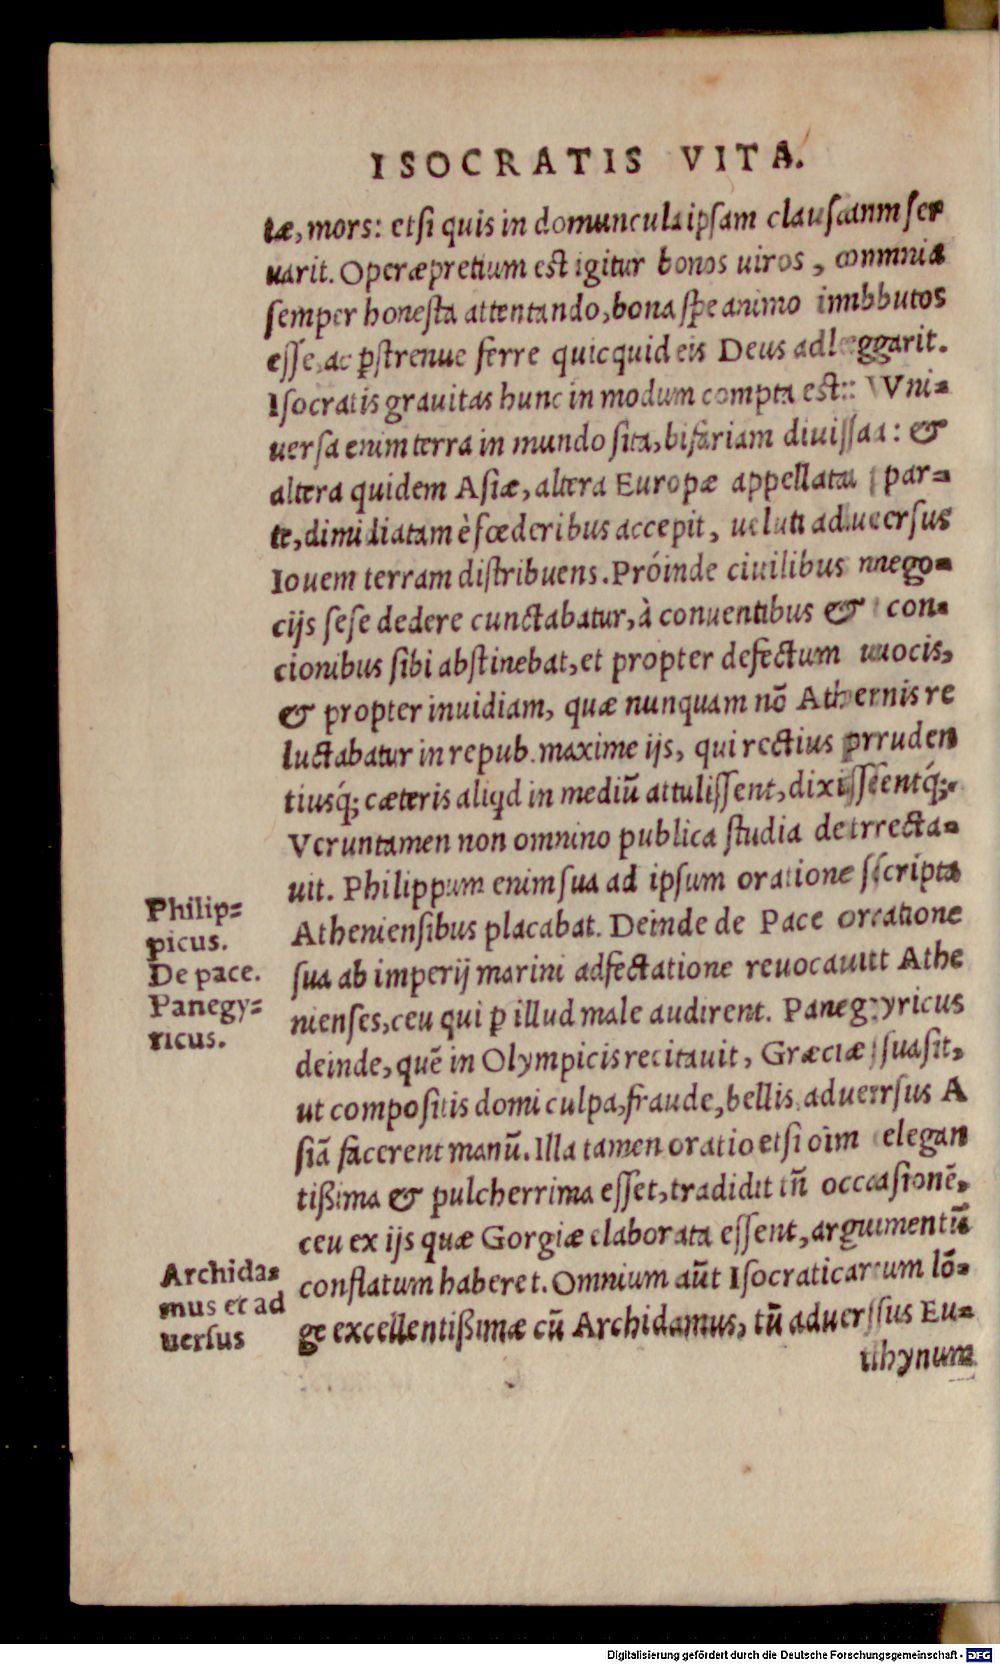 ISOCRATIS VITA.
tæ, mors: etsi quis in domuncula ipsam clausam ser
uarit. Operæpretium est igitur bonos uiros, omnia
semper honesta attentando, bona spe animo imbutos
esse, ac p̱strenue ferre quicquid eis Deus adlegarit.
Isocratis grauitas hunc in modum compta est: Vni=
uersa enim terra in mundo sita, bifariam diuisa: &
altera quidem Asiæ, altera Europæ appellata par=
te, dimidiatam è fœderibus accepit, ueluti aduersus
Iouem terram distribuens. Próinde ciuilibus nego=
cijs sese dedere cunctabatur, à conuentibus & con=
cionibus sibi abstinebat, et propter defectum uocis,
& propter inuidiam, quæ nunquam nō Athenis re
luctabatur in repub. maxime ijs, qui rectius pruden
tiusq́; cæteris aliqd in mediū attulissent, dixissentq́;.
Veruntamen non omnino publica studia detrecta=
uit. Philippum enim sua ad ipsum oratione scripta
Philip=
Atheniensibus placabat. Deinde de Pace oratione
picus.
De pace.
sua ab imperij marini adfectatione reuocauit Athe
Panegy=
nienses, ceu qui p̱ illud male audirent. Panegyricus
ricus.
deinde, quē in Olympicis recitauit, Græciæ suasit,
ut compositis domi culpa, fraude, bellis aduersus A
siā facerent manū. Illa tamen oratio etsi oīm elegan
tißima & pulcherrima esset, tradidit tñ occasionē,
ceu ex ijs quæ Gorgiæ elaborata essent, argumentū
Archida=
conflatum haberet. Omnium aūt Isocraticarum lō=
mus et ad
ge excellentißimæ cū Archidamus, tū aduersus Eu=
uersus
thynum
Digitalisierung gefördert durch die Deutsche Forschungsgemeinschaft - DFG